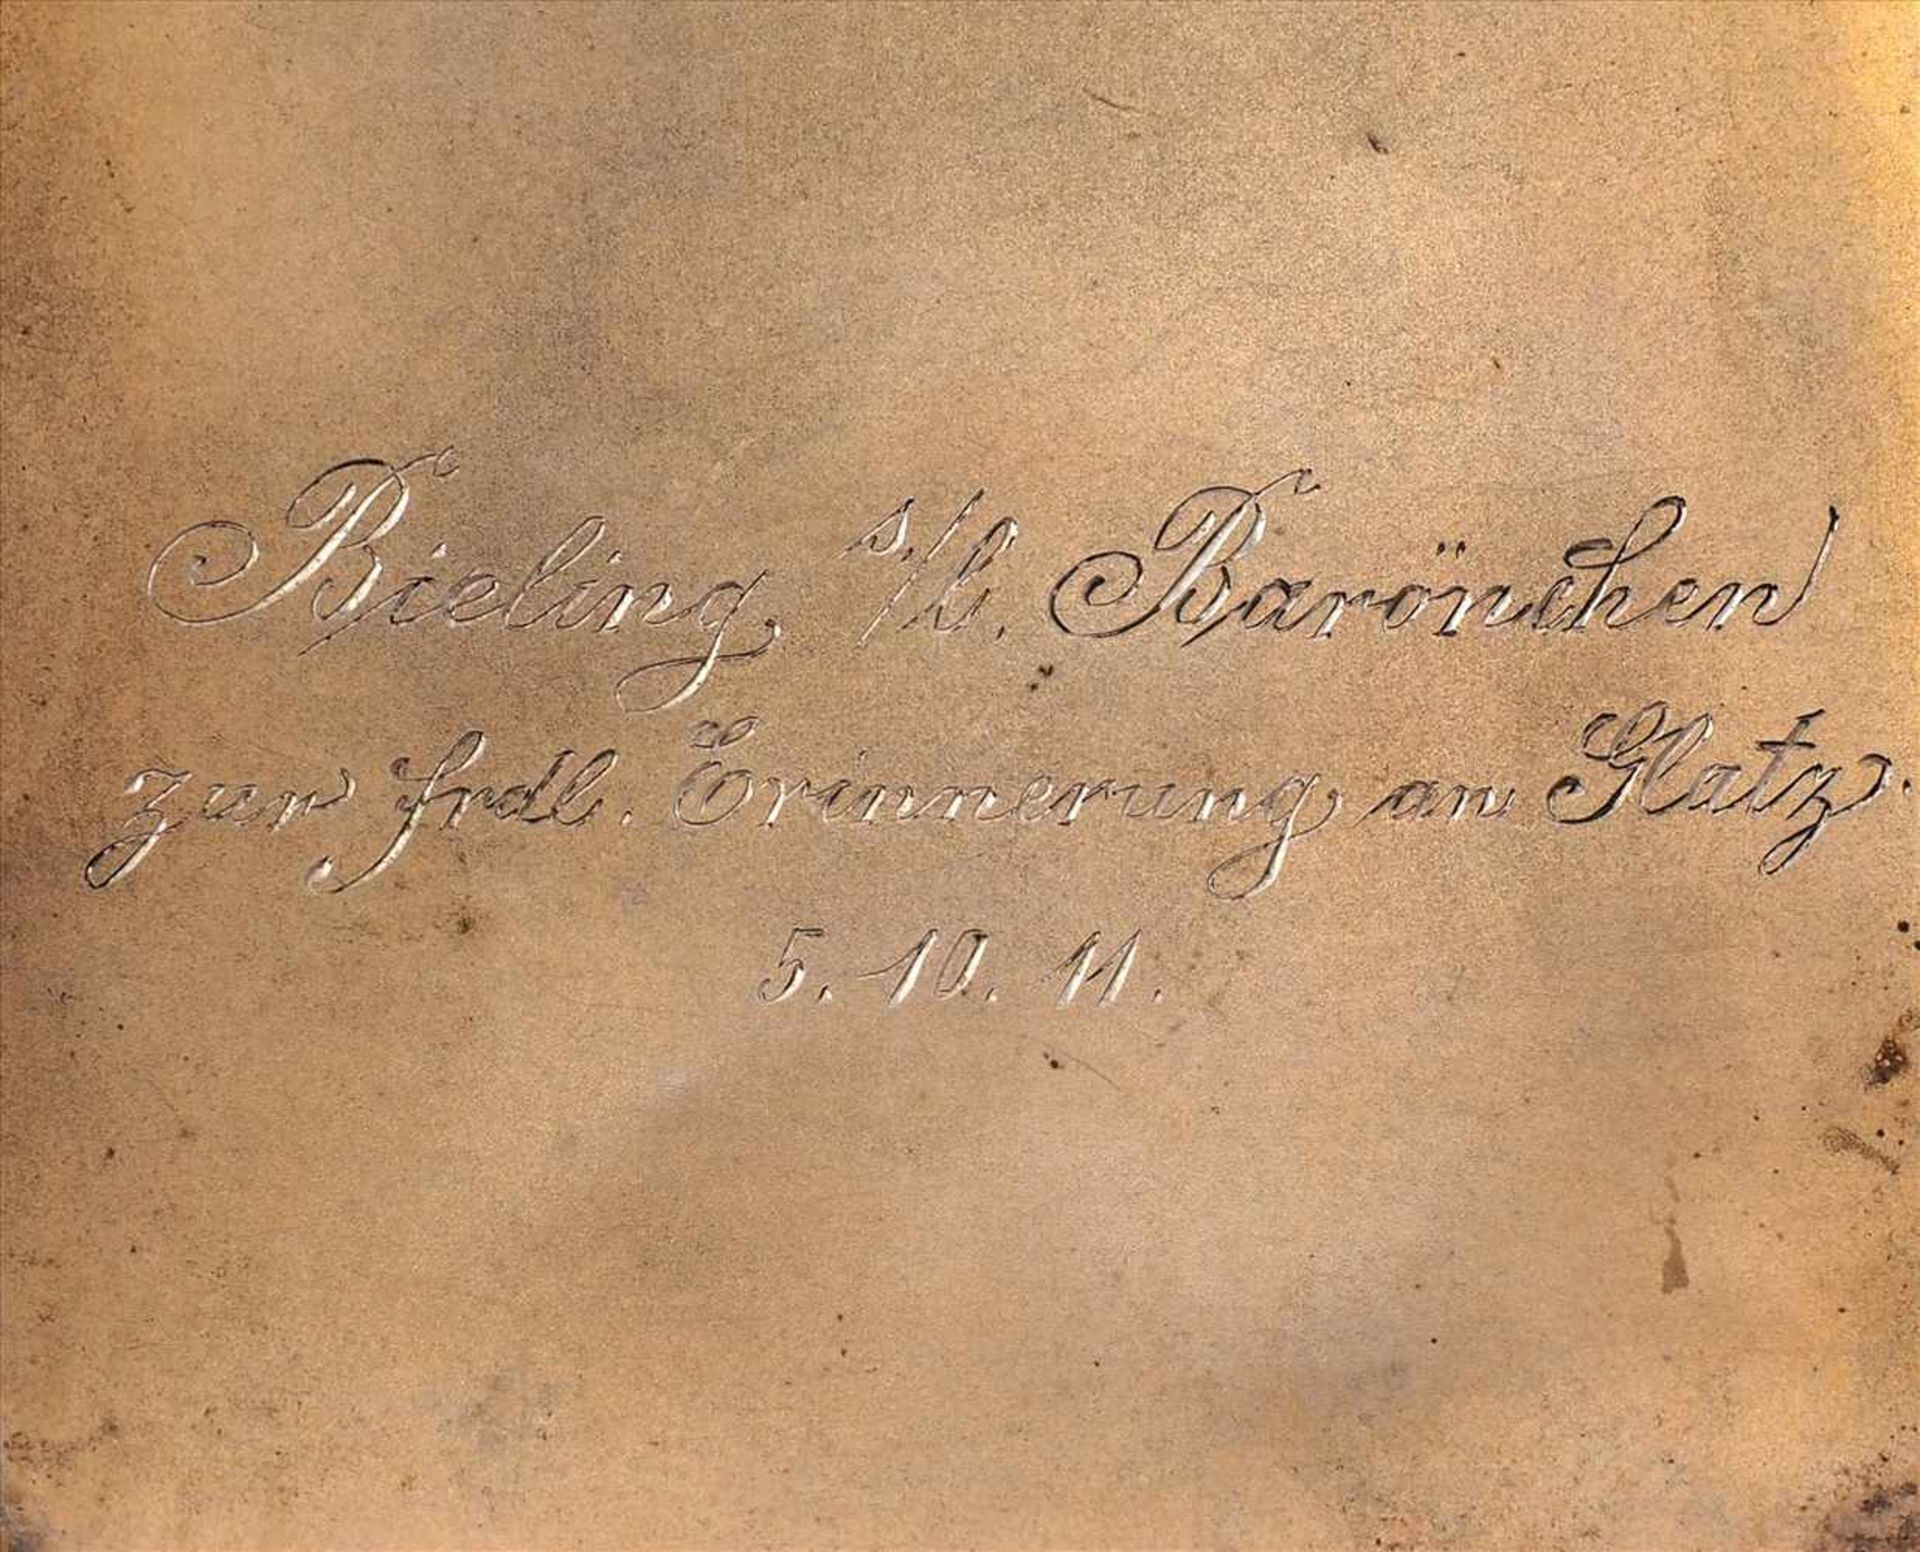 Bieling s./l. Barönchen
zur frdl. Erinnerung an Glatz.
5. 10. 11.